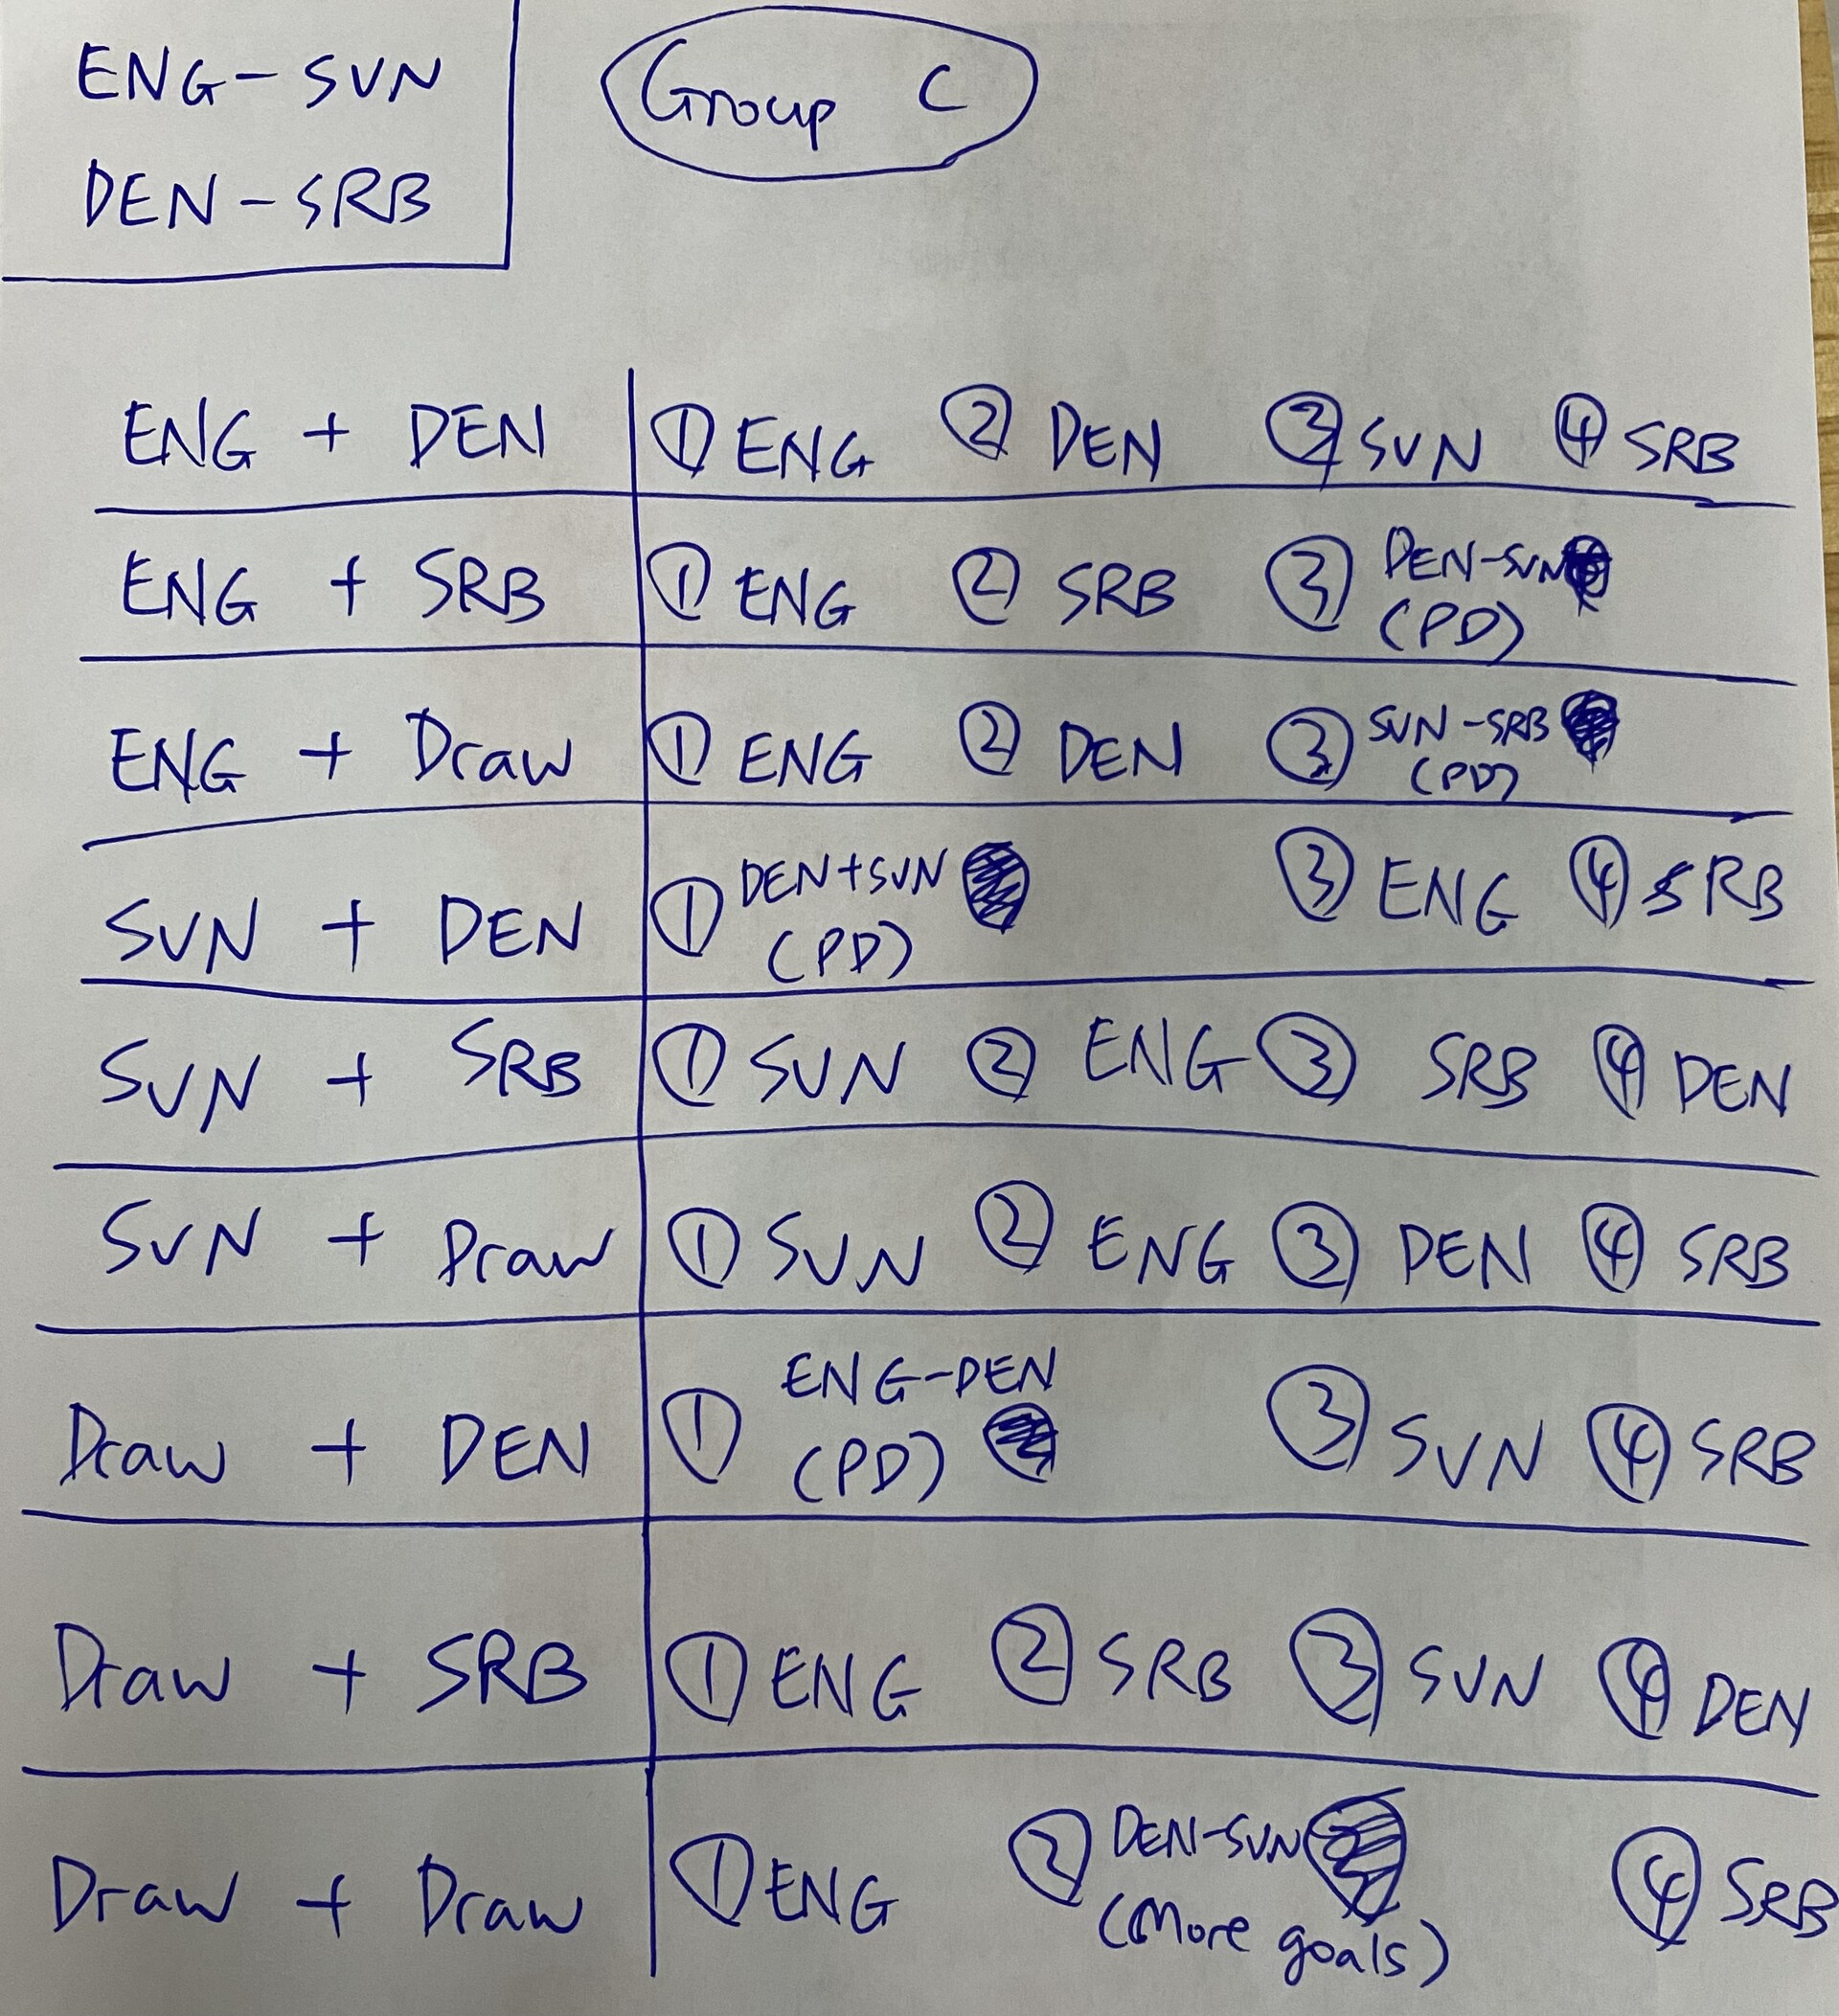 ENG-SVN
Group C
DEN-SRB
ENG + DEN ① ENG ② DEN ③ SVN ④ SRB
ENG + SRB ① ENG ② SRB ③ DEN-SVN
(PD)
ENG + Draw ① ENG ② DEN ③ SVN-SRB
(PD)
SVN + DEN ① DEN+SVN ③ ENG ④ SRB
(PD)
SVN + SRB ① SVN ② ENG ③ SRB ④ DEN
SVN + Draw ① SVN ② ENG ③ DEN ④ SRB
Draw + DEN ① ENG-DEN ③ SVN ④ SRB
(PD)
Draw + SRB ① ENG ② SRB ③ SVN ④ DEN
Draw + Draw ① ENG ② DEN-SVN ④ SRB
(More goals)